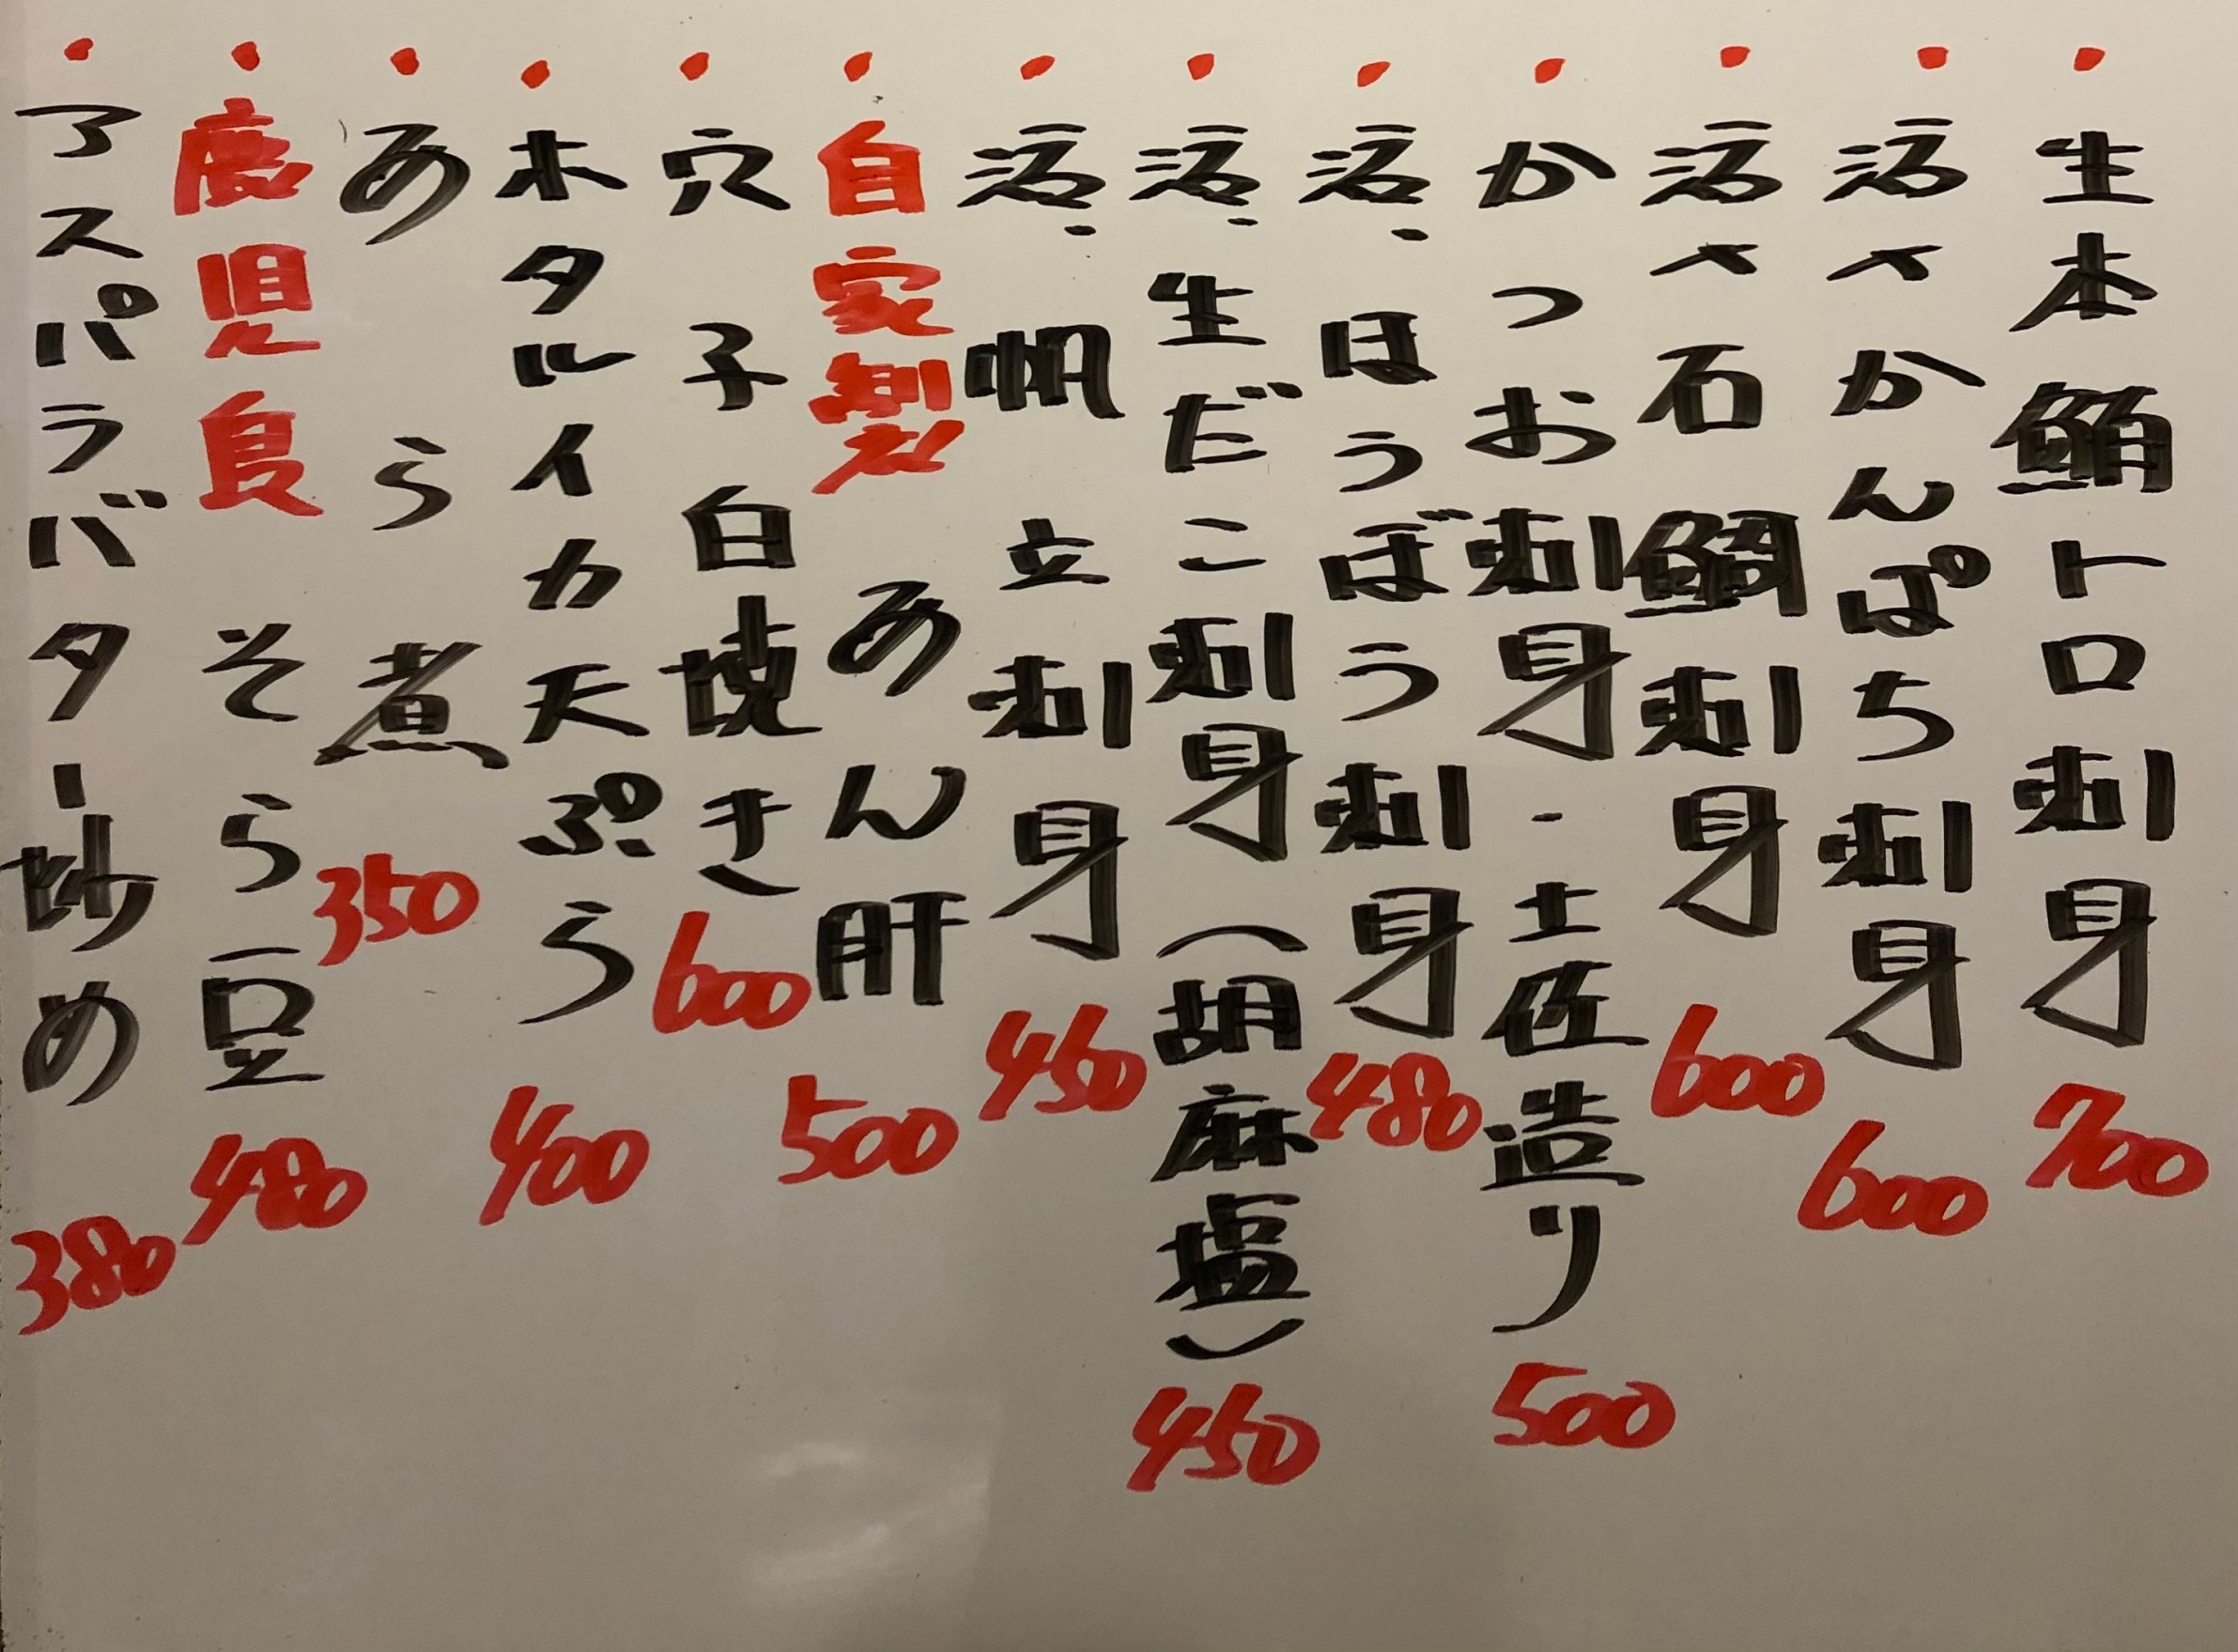 ・生本鮪トロ刺身 700
・活〆かんぱち刺身 600
・活〆石鯛刺身 600
・かつお刺身・土佐造り 500
・活・ほうぼう刺身 480
・活・生だこ刺身（胡麻塩） 450
・活・帆立刺身 450
・自家製あん肝 500
・穴子白焼き 600
・ホタルイカ天ぷら 400
・あら煮 350
・鹿児島そら豆 480
・アスパラバター炒め 380